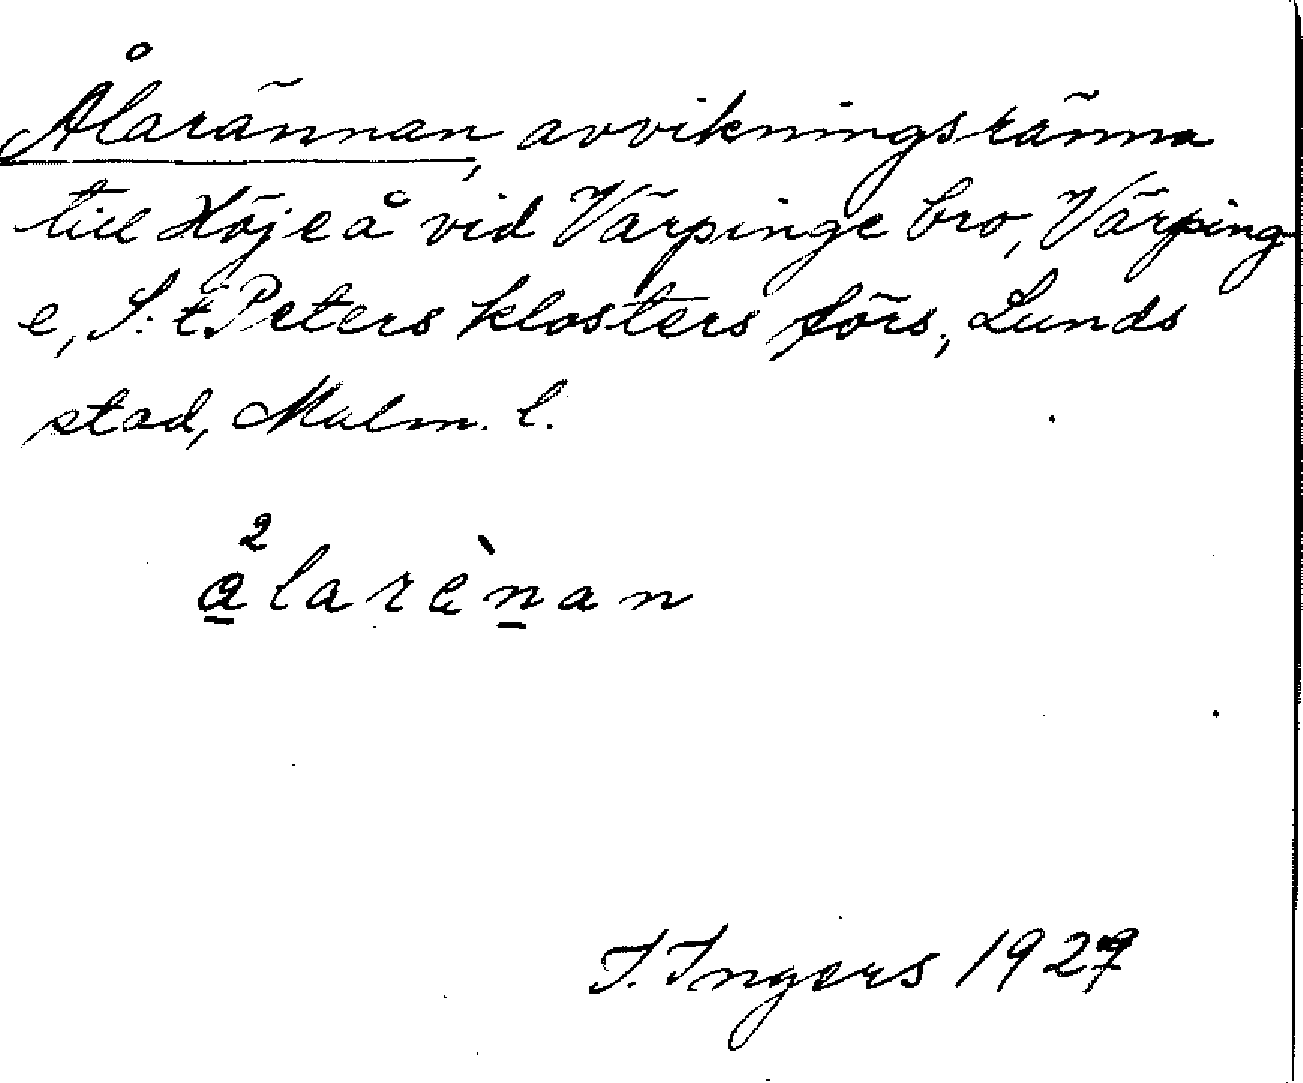 Ålarännan, avvikningsränna
till Höjeå vid Värpinge bro, Värping-
e, S:t Peters klosters förs., Lunds
stad, Malm. l.
å²larènan
I. Ingers 1927